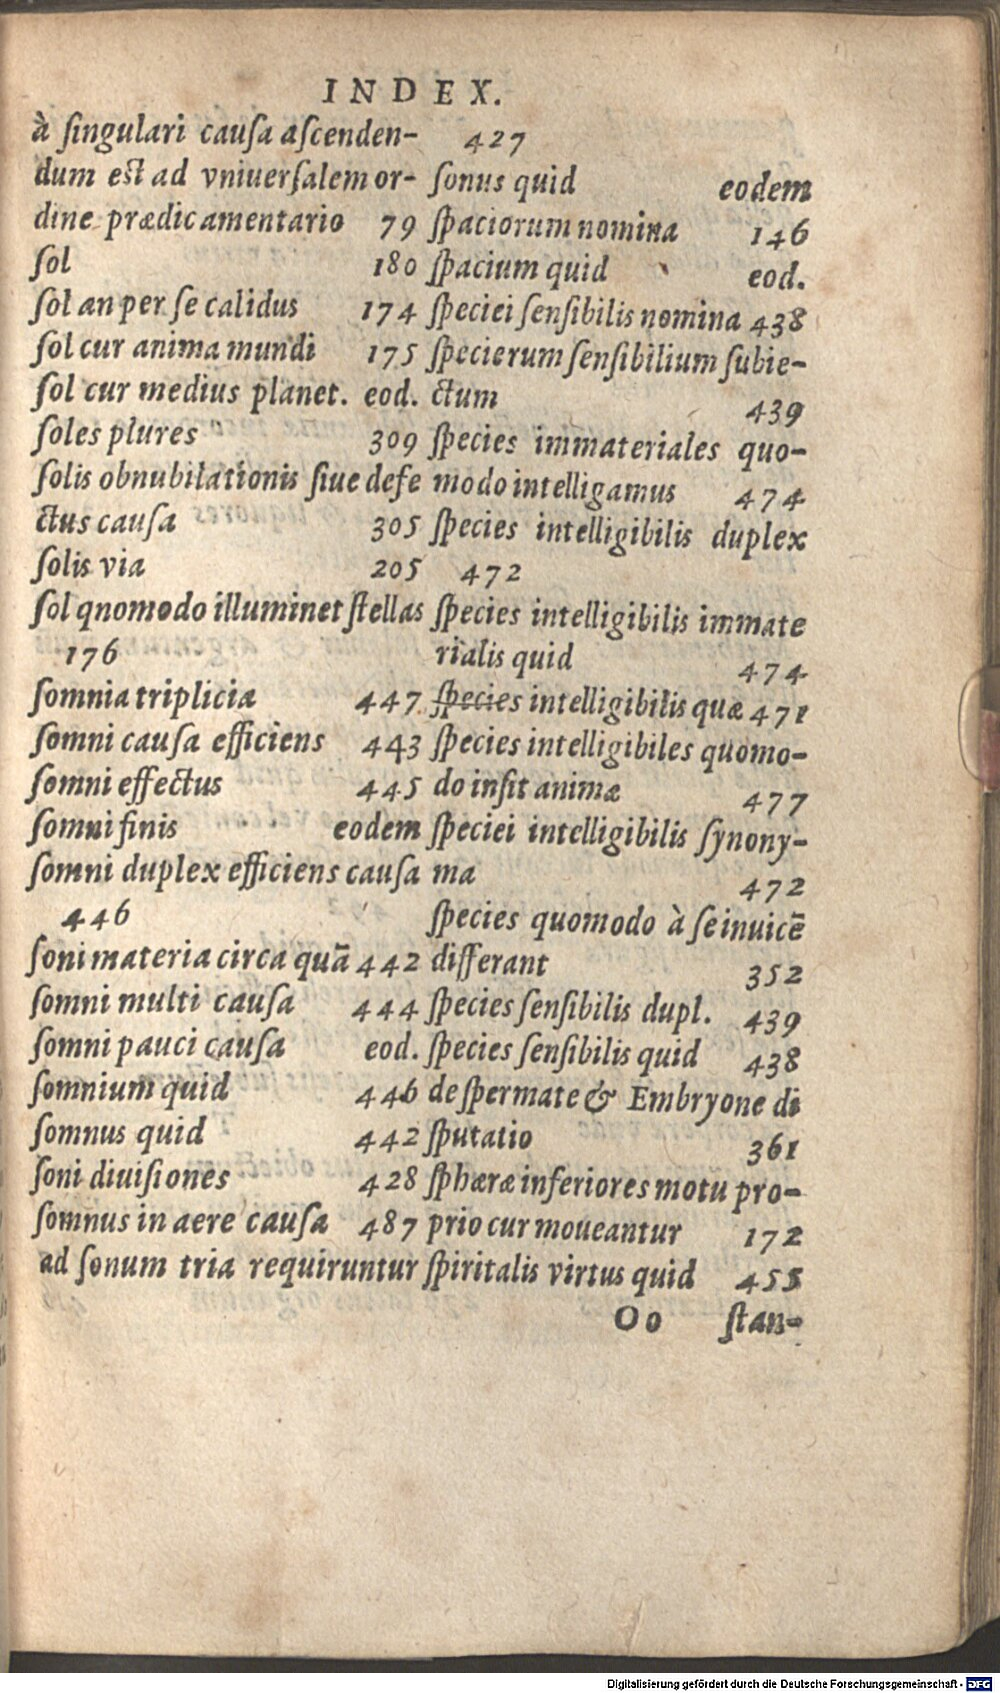 INDEX.
à ſingulari cauſa aſcenden-
dum est ad vniuerſalem or-
dine prædicamentario 79
ſol 180
ſol an per ſe calidus 174
ſol cur anima mundi 175
ſol cur medius planet. eod.
ſoles plures 309
ſolis obnubilationis ſiue defe
ctus cauſa 305
ſolis via 205
ſol qnomodo illuminet ſtellas
176
ſomnia triplicia 447
ſomni cauſa efficiens 443
ſomni effectus 445
ſomni finis eodem
ſomni duplex efficiens cauſa
446
ſoni materia circa quā 442
ſomni multi cauſa 444
ſomni pauci cauſa eod.
ſomnium quid 446
ſomnus quid 442
ſoni diuiſiones 428
ſomnus in aere cauſa 487
ad ſonum tria requiruntur
427
ſonus quid eodem
ſpaciorum nomina 146
ſpacium quid eod.
ſpeciei ſenſibilis nomina 438
ſpecierum ſenſibilium ſubie-
ctum 439
ſpecies immateriales quo-
modo intelligamus 474
ſpecies intelligibilis duplex
472
ſpecies intelligibilis immate
rialis quid 474
ſpecies intelligibilis quæ 471
ſpecies intelligibiles quomo-
do inſit animæ 477
ſpeciei intelligibilis ſynony-
ma 472
ſpecies quomodo à ſe inuicē
differant 352
ſpecies ſenſibilis dupl. 439
ſpecies ſenſibilis quid 438
de ſpermate & Embryone di
ſputatio 361
ſphæræ inferiores motu pro-
prio cur moueantur 172
ſpiritalis virtus quid 455
Oo ſtan-
Digitalisierung gefördert durch die Deutsche Forschungsgemeinschaft - DFG